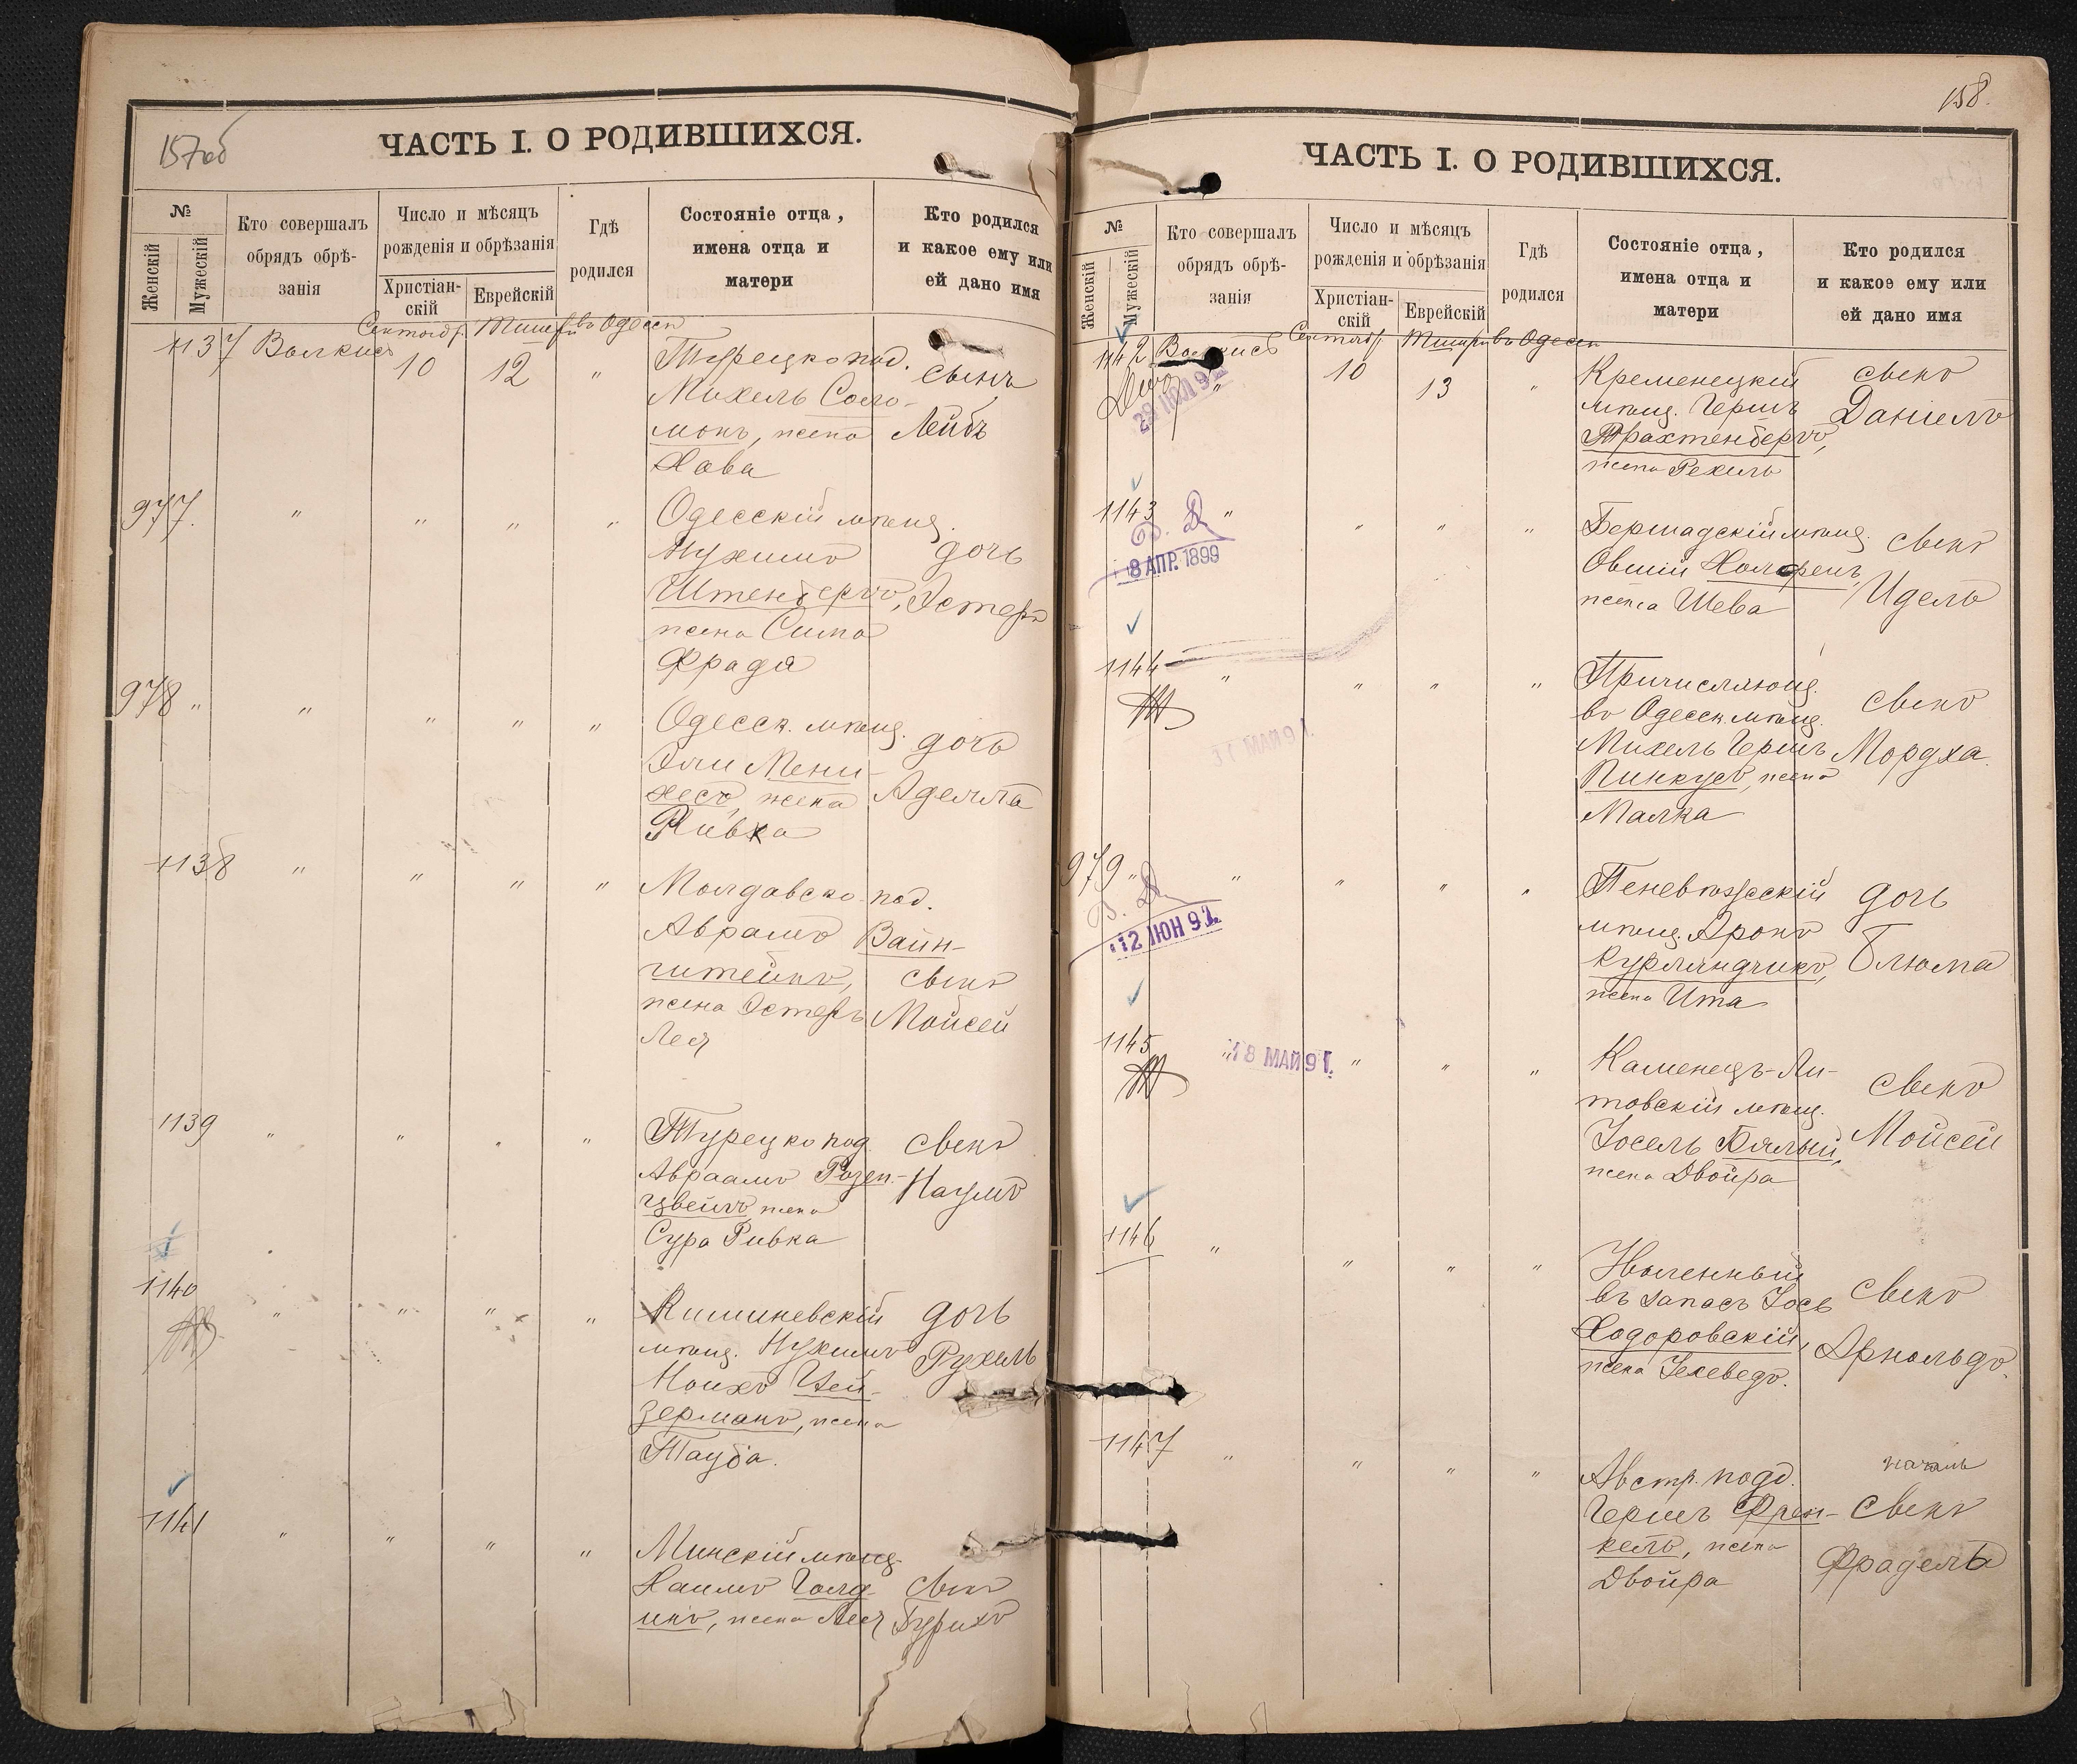 157об
ЧАСТЬ I. О РОДИВШИХСЯ.
№
Женскій
Мужескій
Кто совершалъ
обрядъ обрѣ-
занія
Число и мѣсяцъ
рожденія и обрѣзанія
Христіан-
скій
Еврейскій
Гдѣ
родился
Состояніе отца,
имена отца и
матери
Кто родился
и какое ему или
ей дано имя
1137 Волкисъ
10 12 "
Турецко под.
Михель Соло-
монъ, жена
Хава
сынъ
Лейбъ
977. " " " "
Одесскій мѣщ.
Нухимъ
Штенбергъ,
жена Сима
Фрада
дочь
Эстеръ
978 " " " " "
Одесск. мѣщ.
Эли Мени-
хесъ, жена
Ривка
дочь
Аделла
1138 " " " "
Молдавско-под.
Аврамъ Вайн-
штейнъ,
жена Эстеръ
Лея
сынъ
Мойсей
1139 " " " "
Турецко под.
Авраамъ Розен-
цвейгъ жена
Сура Ривка
сынъ
Наумъ
1140 " " " "
Кишиневскій
мѣщ. Нухимъ
Моихъ Цей-
зерманъ, жена
Тауба.
дочь
Рухель
1141 " " " "
Минскій мѣщ.
Хаимъ Голд-
инъ, жена Лея
сынъ
Бурихъ
158.
ЧАСТЬ I. О РОДИВШИХСЯ.
№
Женскій
Мужескій
Кто совершалъ
обрядъ обрѣ-
занія
Число и мѣсяцъ
рожденія и обрѣзанія
Христіан-
скій
Еврейскій
Гдѣ
родился
Состояніе отца,
имена отца и
матери
Кто родился
и какое ему или
ей дано имя
1142 Волкисъ
10 13 "
Кременецкій
мѣщ. Гершъ
Трахтенбергъ,
жена Рехиль
сынъ
Даніелъ
1143 " " " "
8 АПР. 1899
Бершадскій мѣщ.
Овший
жена Шева
сынъ
Идель
1144 " " " "
МАЙ 91.
Причисляющ.
въ Одесск. мѣщ.
Михель Гершъ
Пинкусъ, жена
Малка
сынъ
Мордха.
979 " " " " "
12 ІЮН 92.
мѣщ. Аронъ
Курляндчикъ,
жена Ита
дочь
Блюма
1145 " " " "
18 МАЙ 91.
Каменецъ-Ли-
товскій мѣщ.
Іосель Бялый,
жена Двойра
сынъ
Мойсей
1146 " " " "
въ запасъ Іось
Ходоровскій,
жена Іохеведъ.
сынъ
Арнольдъ.
1147 " " " "
Австр. подд.
Гершъ Френ-
кель, жена
Двойра
сынъ
Фраделъ